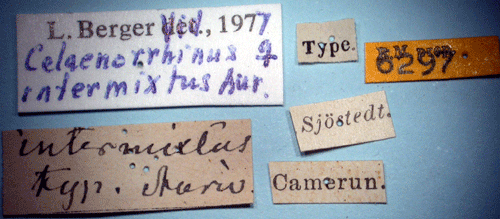 L. Berger det., 1977
Celaenorrhinus ♀
intermixtus Aur.
Type.
6297
Sjöstedt.
intermixtus
typ. Auriv.
Camerun.